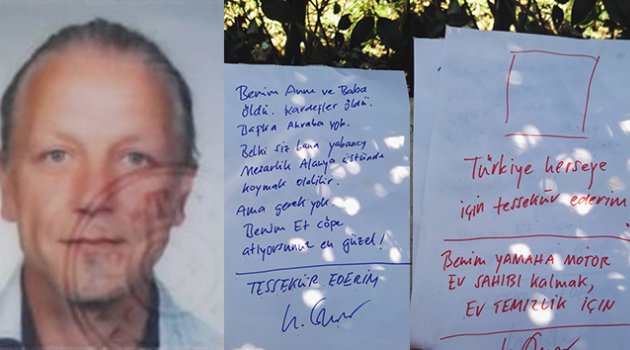 Benim Anne ve Baba
öldü. Kardeşler öldü.
Başka Akraba yok.
Belki siz bana yabancy
Mezarlik Alanya üstünde
koymak olabilir.
Ama gerek yok.
Benim Et çöpe
atıyorsunuz en güzel!
TESSEKÜR EDERIM
Türkiye herseye
için tessekür ederim
Benim YAMAHA MOTOR
EV SAHIBI kalmak,
EV TEMIZLIK IÇIN